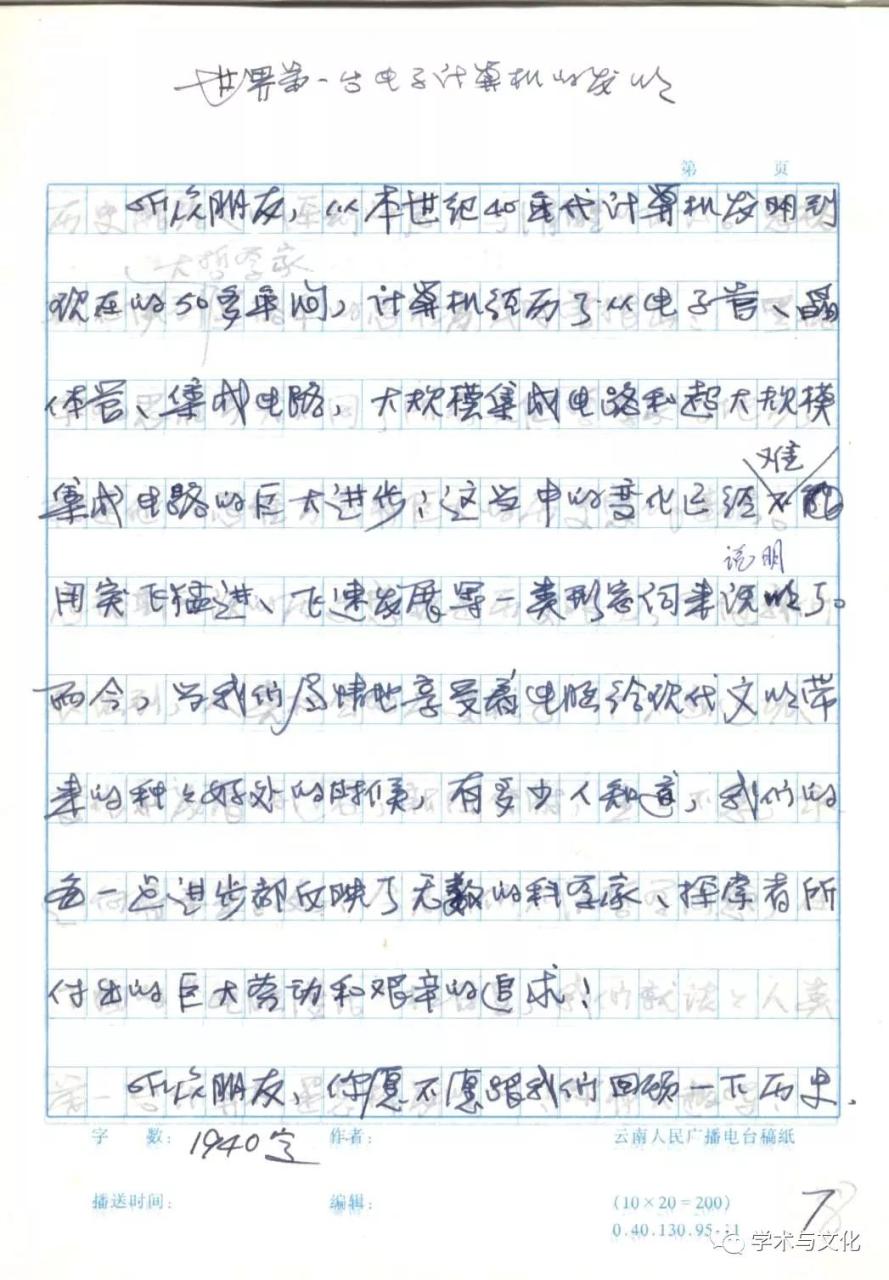 世界第一台电子计算机的发明
第 页
听众朋友，从本世纪40年代计算机发明到
现在的50多年间，计算机经历了从电子管、晶
体管、集成电路，大规模集成电路和超大规模
难
集成电路的巨大进步；这当中的变化已经不能
说明
用突飞猛进、飞速发展等一类形容词来说明了。
而今，当我们尽情地享受着电脑给现代文明带
来的种々好处的时候，有多少人知道，我们的
每一点进步都反映了无数的科学家、探索者所
付出的巨大劳动和艰辛的追求！
听众朋友，你愿不愿跟我们回顾一下历史.
字 数： 1940字 作者： 云南人民广播电台稿纸
播送时间： 编辑： (10×20=200) 7
0.40.130.95-11
学术与文化